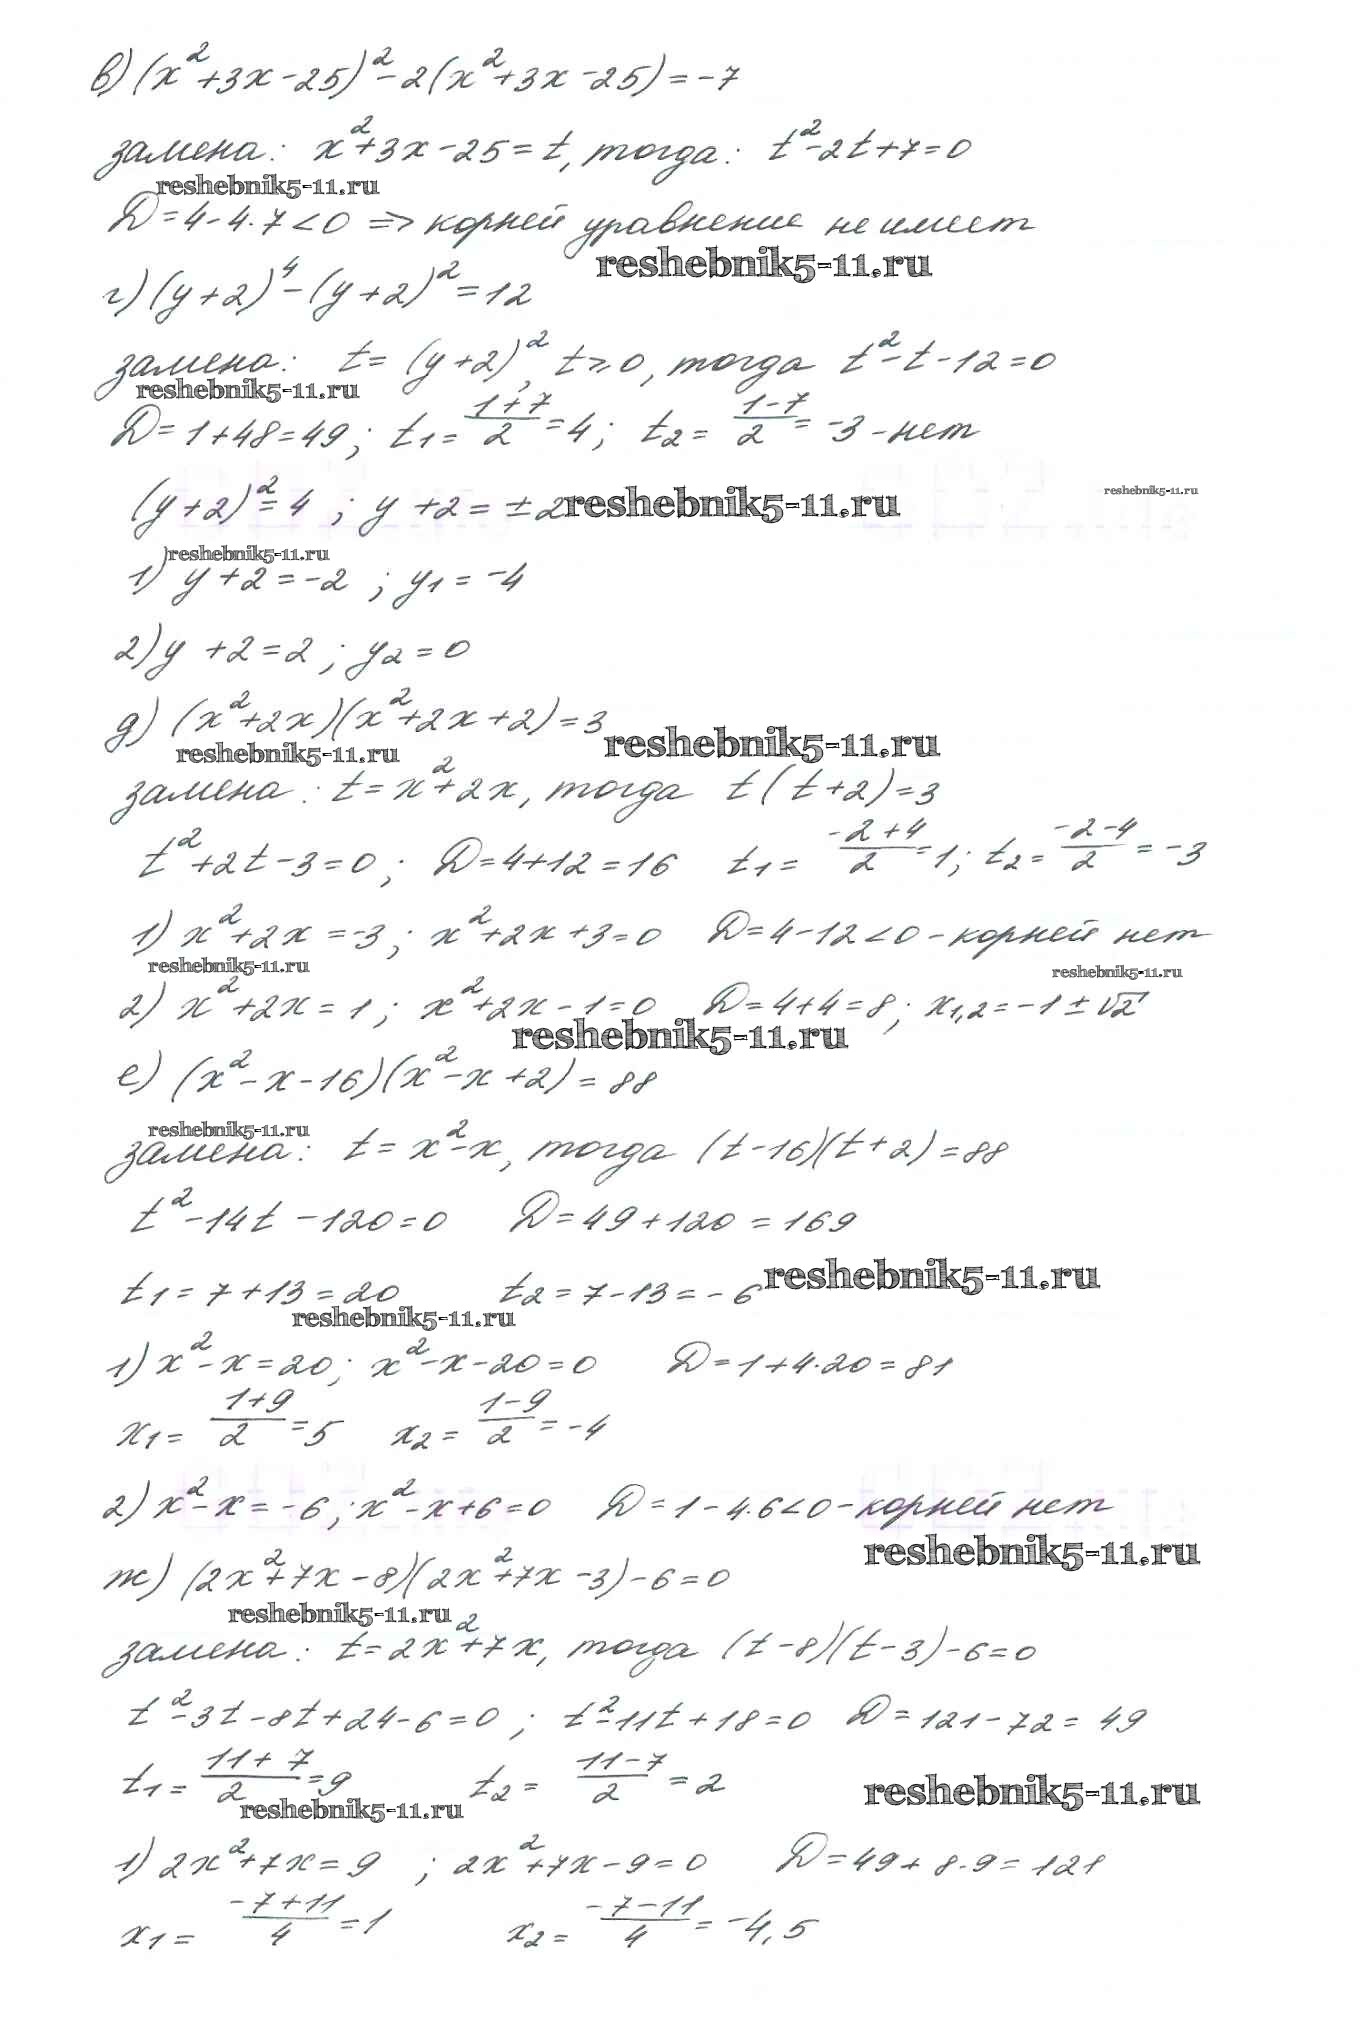 в) (x²+3x-25)²-2(x²+3x-25)=-7
замена: x²+3x-25=t, тогда: t²-2t+7=0
reshebnik5-11.ru
D=4-4·7<0 => корней уравнение не имеет
reshebnik5-11.ru
г) (y+2)⁴-(y+2)²=12
замена: t=(y+2)², t≥0, тогда t²-t-12=0
reshebnik5-11.ru
D=1+48=49; t₁=(1+7)/2=4; t₂=(1-7)/2=-3-нет
(y+2)²=4; y+2=±2 reshebnik5-11.ru
reshebnik5-11.ru
reshebnik5-11.ru
1) y+2=-2; y₁=-4
2) y+2=2; y₂=0
д) (x²+2x)(x²+2x+2)=3
reshebnik5-11.ru
reshebnik5-11.ru
замена: t=x²+2x, тогда t(t+2)=3
t²+2t-3=0; D=4+12=16 t₁=(-2+4)/2=1; t₂=(-2-4)/2=-3
1) x²+2x=-3; x²+2x+3=0 D=4-12<0-корней нет
reshebnik5-11.ru
reshebnik5-11.ru
2) x²+2x=1; x²+2x-1=0 D=4+4=8; x₁,₂=-1±√2
reshebnik5-11.ru
е) (x²-x-16)(x²-x+2)=88
reshebnik5-11.ru
замена: t=x²-x, тогда (t-16)(t+2)=88
t²-14t-120=0 D=49+120=169
t₁=7+13=20 t₂=7-13=-6 reshebnik5-11.ru
reshebnik5-11.ru
1) x²-x=20; x²-x-20=0 D=1+4·20=81
x₁=(1+9)/2=5 x₂=(1-9)/2=-4
2) x²-x=-6; x²-x+6=0 D=1-4·6<0-корней нет
reshebnik5-11.ru
ж) (2x²+7x-8)(2x²+7x-3)-6=0
reshebnik5-11.ru
замена: t=2x²+7x, тогда (t-8)(t-3)-6=0
t²-3t-8t+24-6=0; t²-11t+18=0 D=121-72=49
t₁=(11+7)/2=9 t₂=(11-7)/2=2 reshebnik5-11.ru
reshebnik5-11.ru
1) 2x²+7x=9; 2x²+7x-9=0 D=49+8·9=121
x₁=(-7+11)/4=1 x₂=(-7-11)/4=-4,5